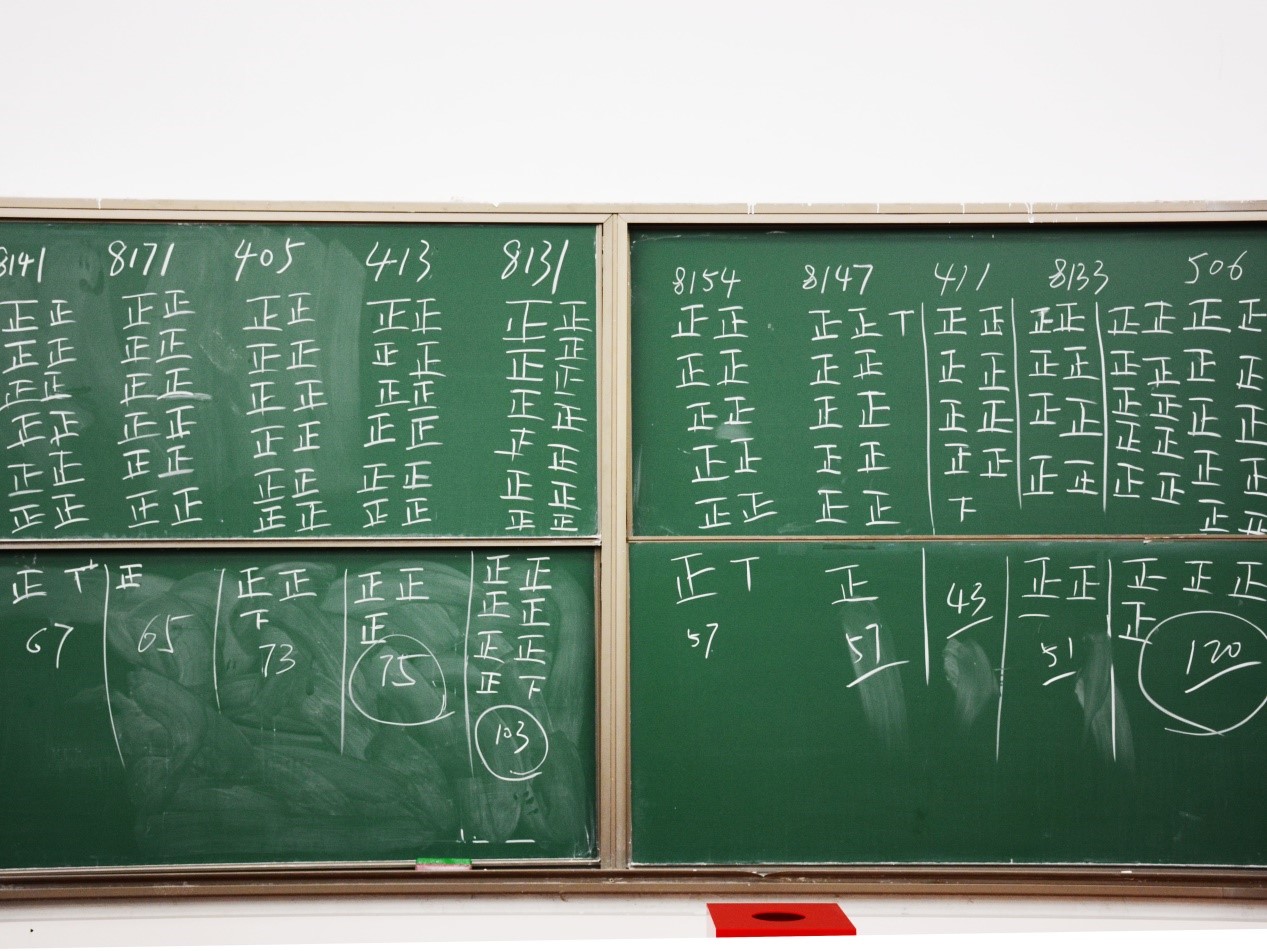 8141 8171 405 413 8131
正正 正正 正正 正正 正正
正正 正正 正正 正正 正正
正正 正正 正正 正正 正正
正正 正正 正正 正正 正正
正正 正正 正正 正正 正正
正正 正正 正正 正正 正正
正
正丅 正 正正 正正 正正
下 正 正正
67 65 73 75 正正
正下
103
8154 8147 411 8133 506
正正 正正丅 正正 正正 正正正正
正正 正正 正正 正正 正正正正
正正 正正 正正 正正 正正正正
正正 正正 正正 正正 正正正正
正正 正正 下 正正正正
正丅 正 43 正正 正正正
57 57 一 正
51 120